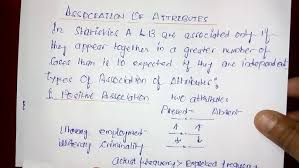 ASSOCIATION OF ATTRIBUTES
In Statistics A & B are associated only if
they appear together in a greater number of
Cases than is to expected if they are independent
Types Of Association of Attributes:
1. Positive Association two attributes
Present Absent
Literacy employment ↑ ↓
Illiteracy Criminality ↑ ↓
Actual frequency > Expected frequency